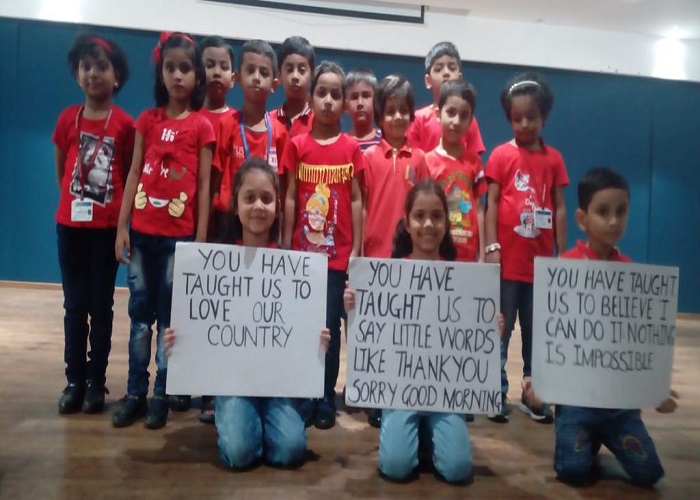 Hi
YOU HAVE
TAUGHT US TO
LOVE OUR
COUNTRY
YOU HAVE
TAUGHT US TO
SAY LITTLE WORDS
LIKE THANKYOU
SORRY GOOD MORNING
YOU HAVE TAUGHT
US TO BELIEVE I
CAN DO IT NOTHING
IS IMPOSSIBLE